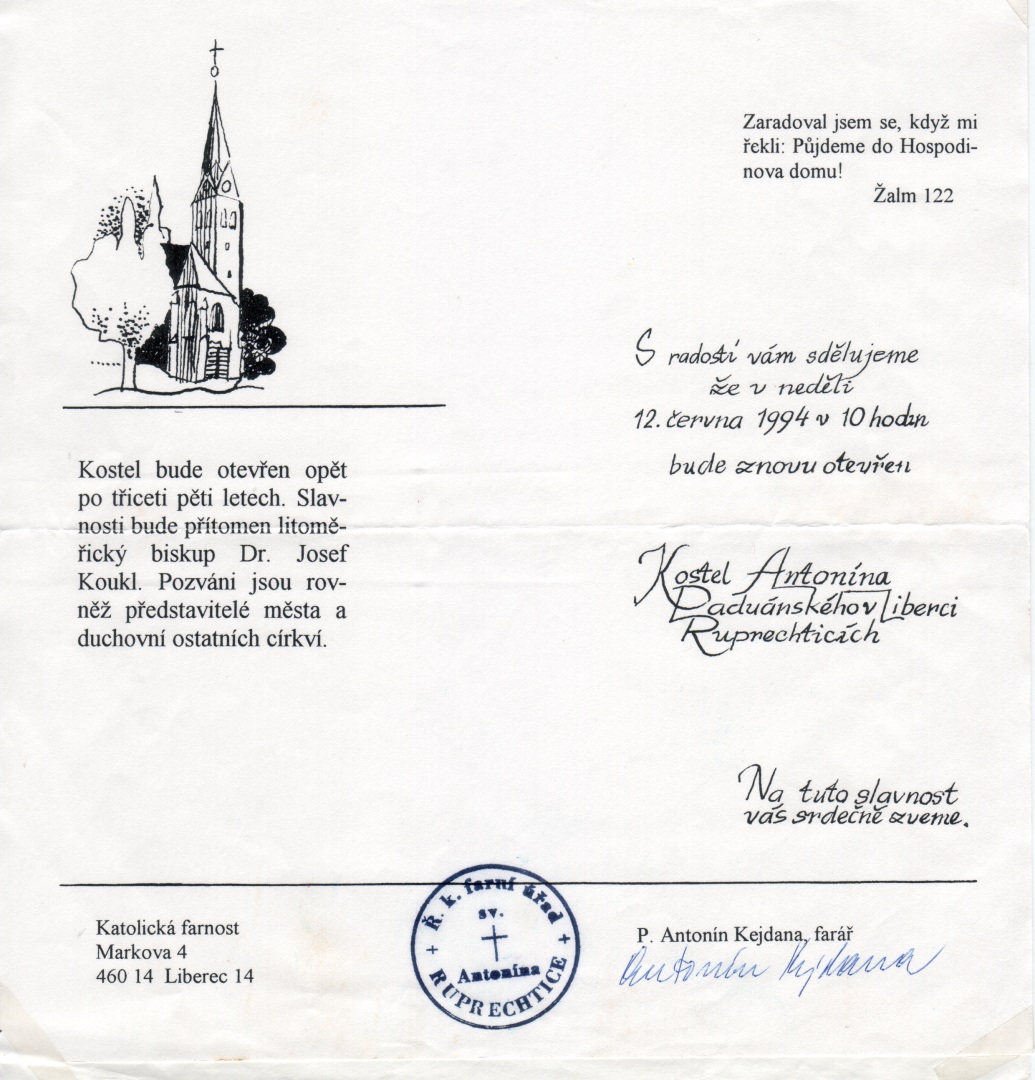 Zaradoval jsem se, když mi
řekli: Půjdeme do Hospodi-
nova domu!
Žalm 122
S radostí vám sdělujeme
že v neděli
12. června 1994 v 10 hodin
bude znovu otevřen
Kostel Antonína
Paduánského v Liberci
Ruprechticích
Na tuto slavnost
vás srdečně zveme.
Kostel bude otevřen opět
po třiceti pěti letech. Slav-
nosti bude přítomen litomě-
řický biskup Dr. Josef
Koukl. Pozváni jsou rov-
něž představitelé města a
duchovní ostatních církví.
Katolická farnost
Markova 4
460 14 Liberec 14
Ř. k. farní úřad
sv.
Antonína
RUPRECHTICE
P. Antonín Kejdana, farář
Antonín Kejdana